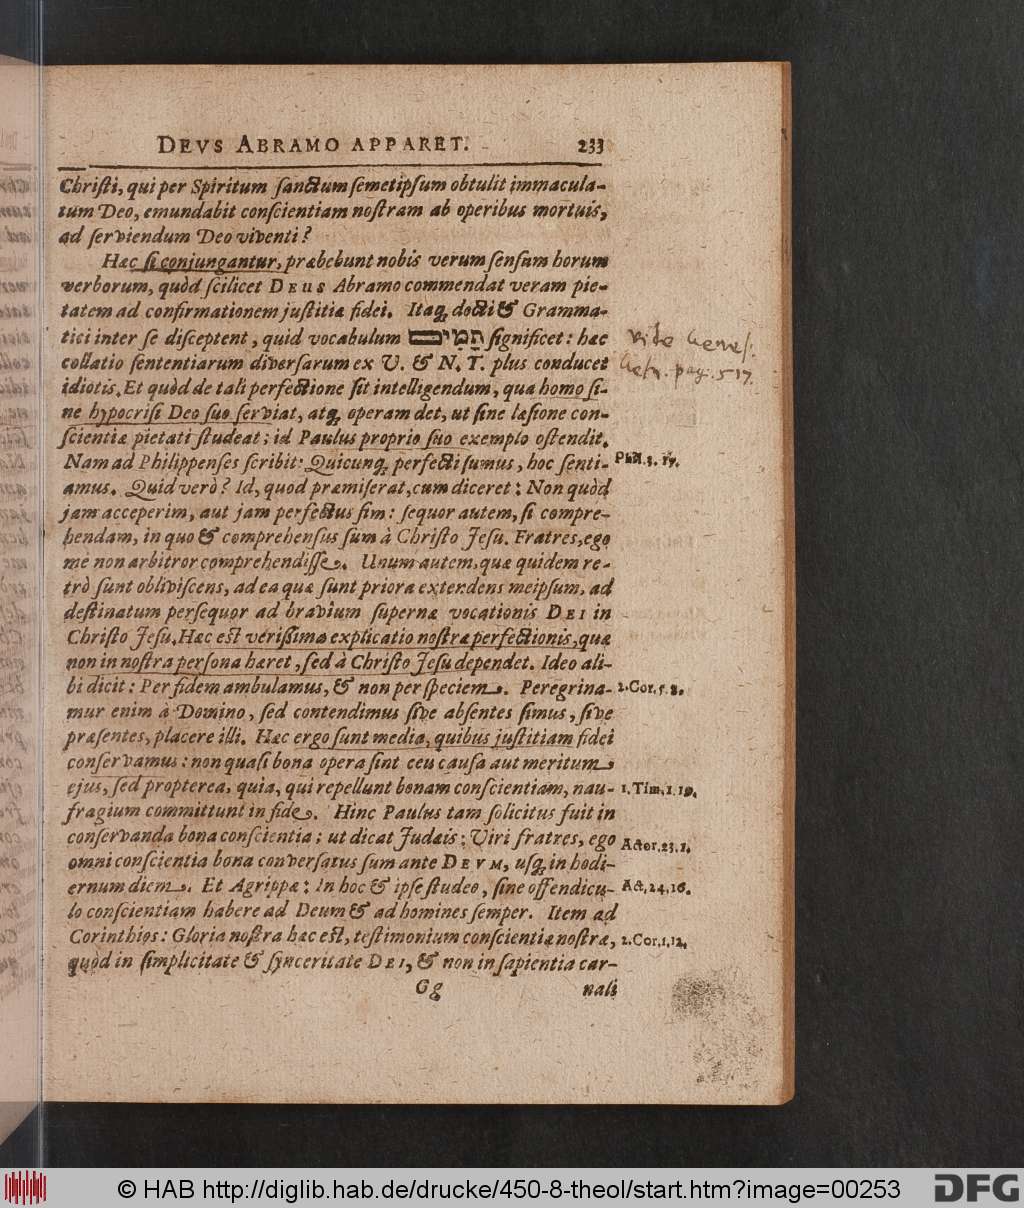 DEVS ABRAMO APPARET. 233
Christi, qui per Spiritum sanctum semetipsum obtulit immacula-
tum Deo, emundabit conscientiam nostram ab operibus mortuis,
ad serviendum Deo viventi?
Hæc si conjungantur, præbebunt nobis verum sensum horum
verborum, quòd scilicet DEUS Abramo commendat veram pie-
tatem ad confirmationem justitiæ fidei. Itaq; docti & Gramma-
tici inter se disceptent, quid vocabulum תָּמִים significet: hæc
collatio sententiarum diversarum ex V. & N. T. plus conducet
idiotis. Et quòd de tali perfectione sit intelligendum, qua homo si-
ne hypocrisi Deo suo serviat, atq; operam det, ut sine læsione con-
scientiæ pietati studeat; id Paulus proprio suo exemplo ostendit.
Nam ad Philippenses scribit: Quicunq; perfecti sumus, hoc senti-
amus. Quid verò? Id, quod præmiserat, cum diceret: Non quòd
jam acceperim, aut jam perfectus sim: sequor autem, si compre-
hendam, in quo & comprehensus sum à Christo Jesu. Fratres, ego
me non arbitror comprehendisse. Unum autem, quæ quidem re-
trò sunt obliviscens, ad ea quæ sunt priora extendens meipsum, ad
destinatum persequor ad bravium supernæ vocationis DEI in
Christo Jesu. Hæc est verissima explicatio nostræ perfectionis, quæ
non in nostra persona hæret, sed à Christo Jesu dependet. Ideo ali-
bi dicit: Per fidem ambulamus, & non per speciem. Peregrina-
mur enim à Domino, sed contendimus sive absentes simus, sive
præsentes, placere illi. Hæc ergo sunt media, quibus justitiam fidei
conservamus: non quasi bona opera sint ceu causa aut meritum
ejus, sed propterea, quia, qui repellunt bonam conscientiam, nau-
fragium committunt in fide. Hinc Paulus tam solicitus fuit in
conservanda bona conscientia; ut dicat Judæis: Viri fratres, ego
omni conscientia bona conversatus sum ante DEVM, usq; in hodi-
ernum diem. Et Agrippæ: In hoc & ipse studeo, sine offendicu-
lo conscientiam habere ad Deum & ad homines semper. Item ad
Corinthios: Gloria nostra hæc est, testimonium conscientiæ nostræ,
quòd in simplicitate & synceritate DEI, & non in sapientia car-
Gg nali
pag. 517.
Phil. 3. 15.
2. Cor. 5. 8.
1. Tim. 1. 19.
Actor. 23. 1.
Act. 24. 16.
2. Cor. 1. 12.
© HAB http://diglib.hab.de/drucke/450-8-theol/start.htm?image=00253
DFG